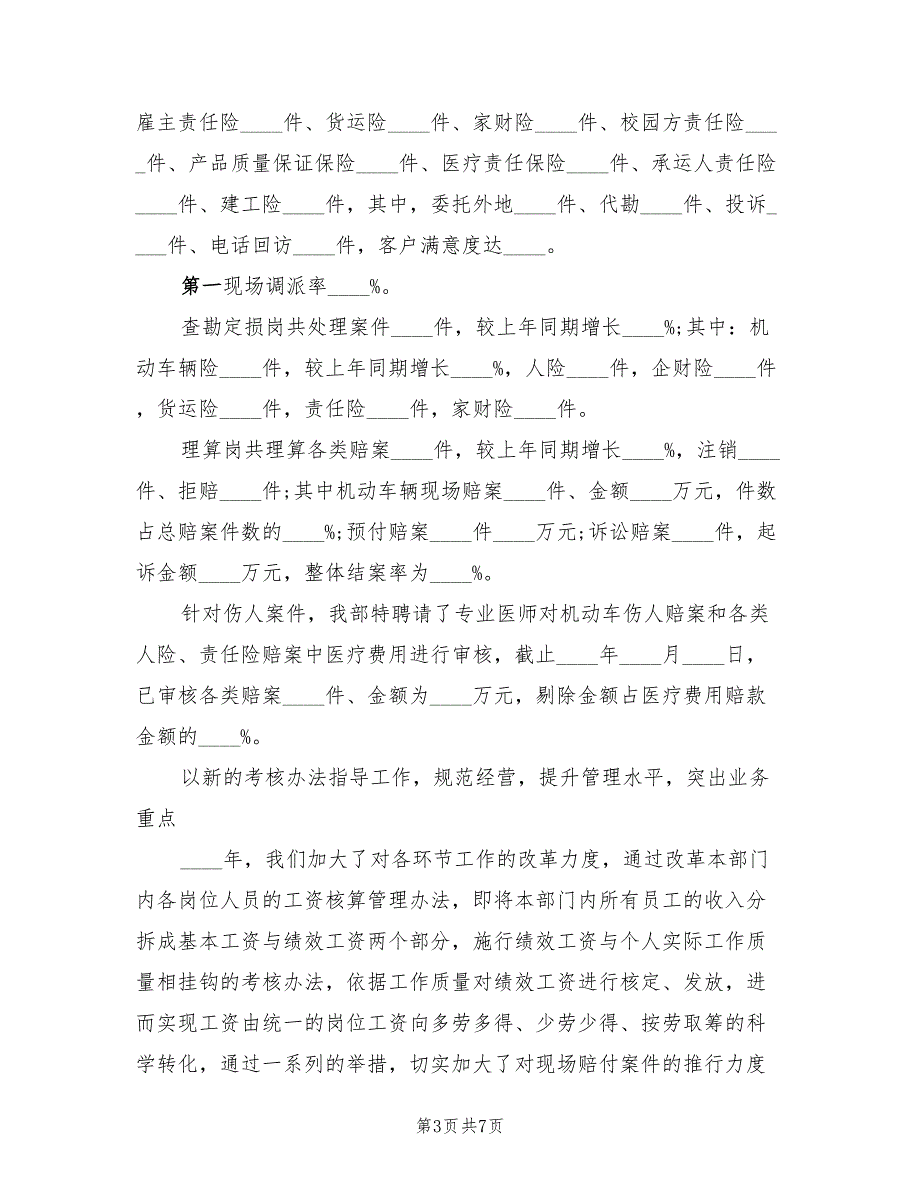 雇主责任险____件、货运险____件、家财险____件、校园方责任险___
_件、产品质量保证保险____件、医疗责任保险____件、承运人责任险
____件、建工险____件，其中，委托外地____件、代勘____件、投诉_
___件、电话回访____件，客户满意度达____。
第一现场调派率____%。
查勘定损岗共处理案件____件，较上年同期增长____%;其中：机
动车辆险____件，较上年同期增长____%，人险____件，企财险____件
，货运险____件，责任险____件，家财险____件。
理算岗共理算各类赔案____件，较上年同期增长____%，注销____
件、拒赔____件;其中机动车辆现场赔案____件、金额____万元，件数
占总赔案件数的____%;预付赔案____件____万元;诉讼赔案____件，起
诉金额____万元，整体结案率为____%。
针对伤人案件，我部特聘请了专业医师对机动车伤人赔案和各类
人险、责任险赔案中医疗费用进行审核，截止____年____月____日，
已审核各类赔案____件、金额为____万元，剔除金额占医疗费用赔款
金额的____%。
以新的考核办法指导工作，规范经营，提升管理水平，突出业务
重点
____年，我们加大了对各环节工作的改革力度，通过改革本部门
内各岗位人员的工资核算管理办法，即将本部门内所有员工的收入分
拆成基本工资与绩效工资两个部分，施行绩效工资与个人实际工作质
量相挂钩的考核办法，依据工作质量对绩效工资进行核定、发放，进
而实现工资由统一的岗位工资向多劳多得、少劳少得、按劳取筹的科
学转化，通过一系列的举措，切实加大了对现场赔付案件的推行力度
第3页 共7页